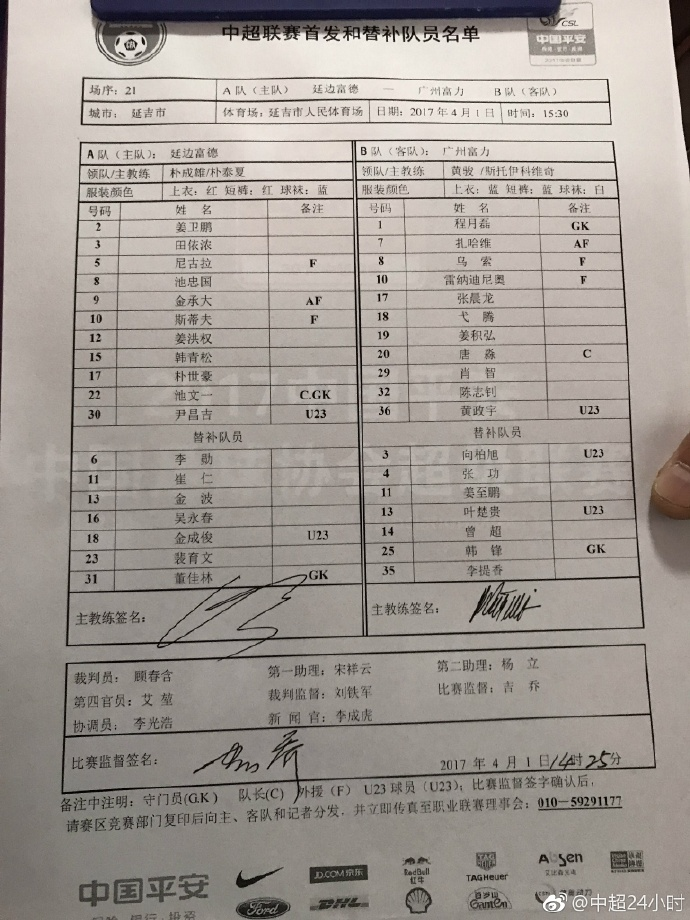 CSL
中国平安
中超联赛首发和替补队员名单
场序: 21 A 队（主队） 延边富德 — 广州富力 B 队（客队）
城市: 延吉市 体育场: 延吉市人民体育场 日期: 2017 年 4 月 1 日 时间: 15:30
A 队（主队）: 延边富德 B 队（客队）: 广州富力
领队/主教练 朴成雄/朴泰夏 领队/主教练 黄骏 /斯托伊科维奇
服装颜色 上衣: 红 短裤: 红 球袜: 蓝 服装颜色 上衣: 蓝 短裤: 蓝 球袜: 白
号码 姓 名 备注 号码 姓 名 备注
2 姜卫鹏 1 程月磊 GK
3 田依浓 7 扎哈维 AF
5 尼古拉 F 8 乌 索 F
8 池忠国 10 雷纳迪尼奥 F
9 金承大 AF 17 张晨龙
10 斯蒂夫 F 18 弋 腾
12 姜洪权 19 姜积弘
15 韩青松 20 唐 淼 C
17 朴世豪 29 肖 智
22 池文一 C.GK 32 陈志钊
30 尹昌吉 U23 36 黄政宇 U23
替补队员 替补队员
6 李 勋 3 向柏旭 U23
11 崔 仁 4 张 功
13 金 波 11 姜至鹏
16 吴永春 13 叶楚贵 U23
18 金成俊 U23 14 曾 超
23 裴育文 25 韩 锋 GK
31 董佳林 GK 35 李提香
主教练签名: 主教练签名:
裁判员: 顾春含 第一助理: 宋祥云 第二助理: 杨 立
第四官员: 艾 堃 裁判监督: 刘铁军 比赛监督: 吉 乔
协调员: 李光浩 新 闻 官: 李成虎
比赛监督签名: 2017 年 4 月 1 日 14时 25分
备注中注明: 守门员(G.K) 队长(C) 外援（F） U23 球员（U23）; 比赛监督签字确认后,
请赛区竞赛部门复印后向主、客队和记者分发，并立即传真至职业联赛理事会: 010—59291177
中国平安
JD.COM 京东
RedBull
红牛
TAGHeuer
AbSen
Ford
DHL
Ganten
@中超24小时